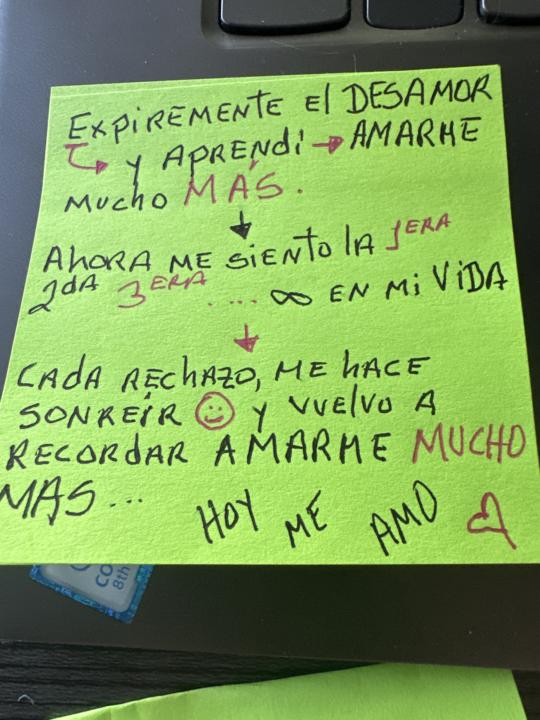 EXPIREMENTE El DESAMOR
↳ y APRENDí → AMARME
MUCHO MÁS.
↓
AHORA ME SIENTO lA 1ERA
2dA 3ERA .... ∞ EN Mi ViDA
↓
CAdA RECHAZO, ME hACE
SONREÍR ☺ Y VUElVO A
RECORdAR AMARME MUCHO
MAS... HOY ME AMO ♡
CO
8th